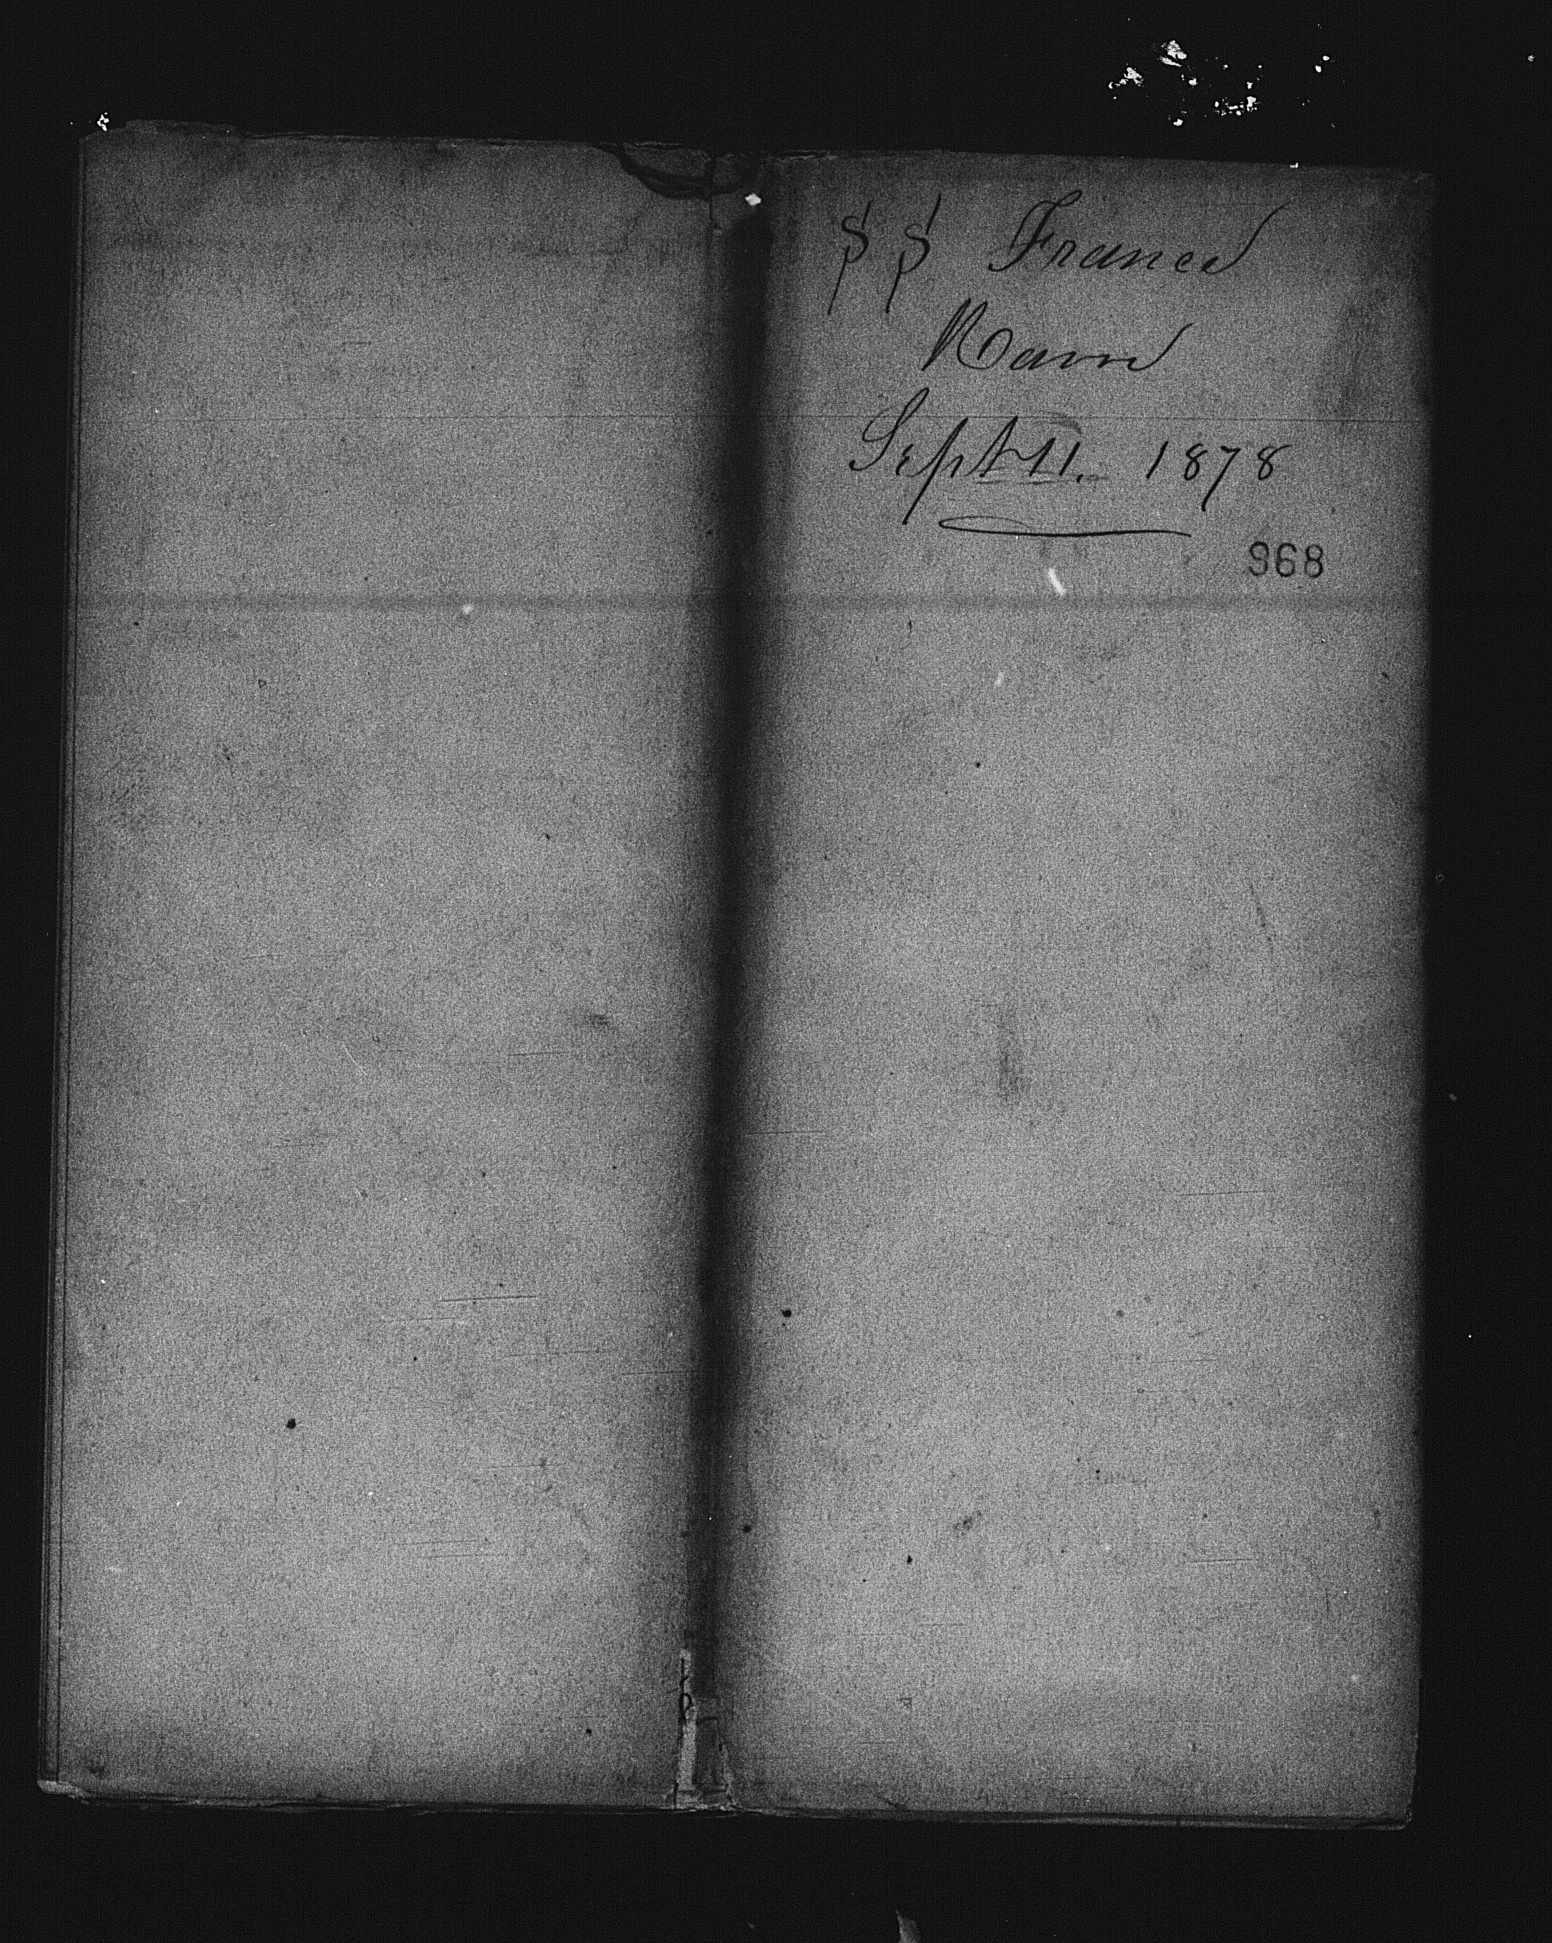 SS France
Havre
Sept 11. 1878
968